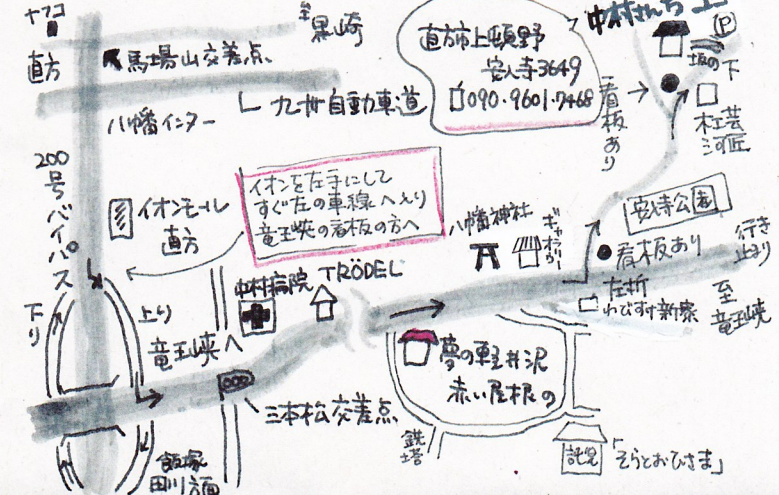 ナフコ
直方
馬場山交差点
至
黒崎
八幡インター
九州自動車道
直方市上頓野
安入寺3649
090-9601-7468
中村さんち
P
坂の下
看板あり
杜芸
河匠
200号バイパス
イオンモール
直方
イオンを左手にして
すぐ左の車線へ入り
竜王峡の看板の方へ
八幡神社
ギャラリー
安入寺公園
看板あり
行き
止まり
左折
わびすけ新家
至
竜王峡
下り
上り
竜王峡へ
中村病院
TRÖDEL
三本松交差点
夢の軽井沢
赤い屋根の
鉄塔
託児
「そらとおひさま」
飯塚
田川方面